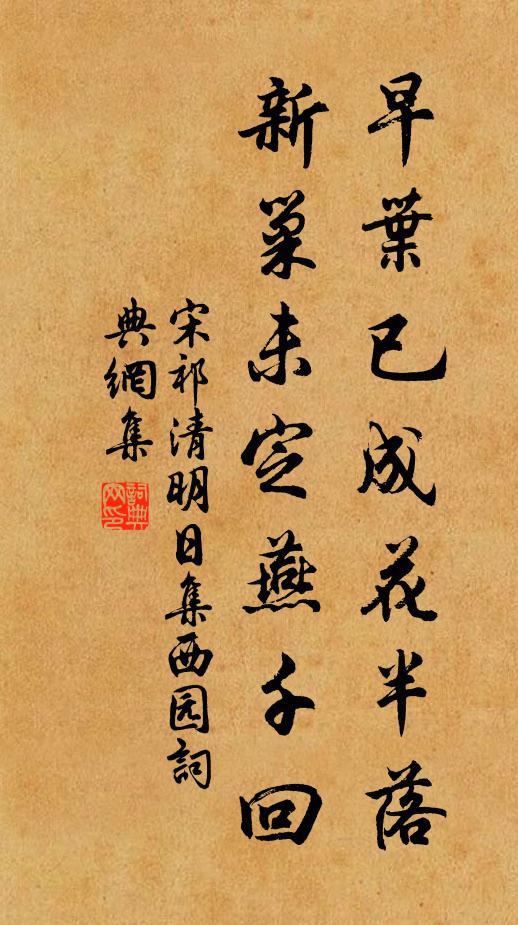 早葉已成花半落
新巢未定燕千回
宋祁清明日集西园詞
典網集
詞典網印